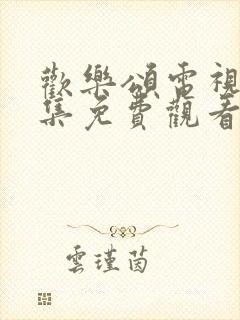 歡樂頌電視
集免費觀看
雲瑾茵